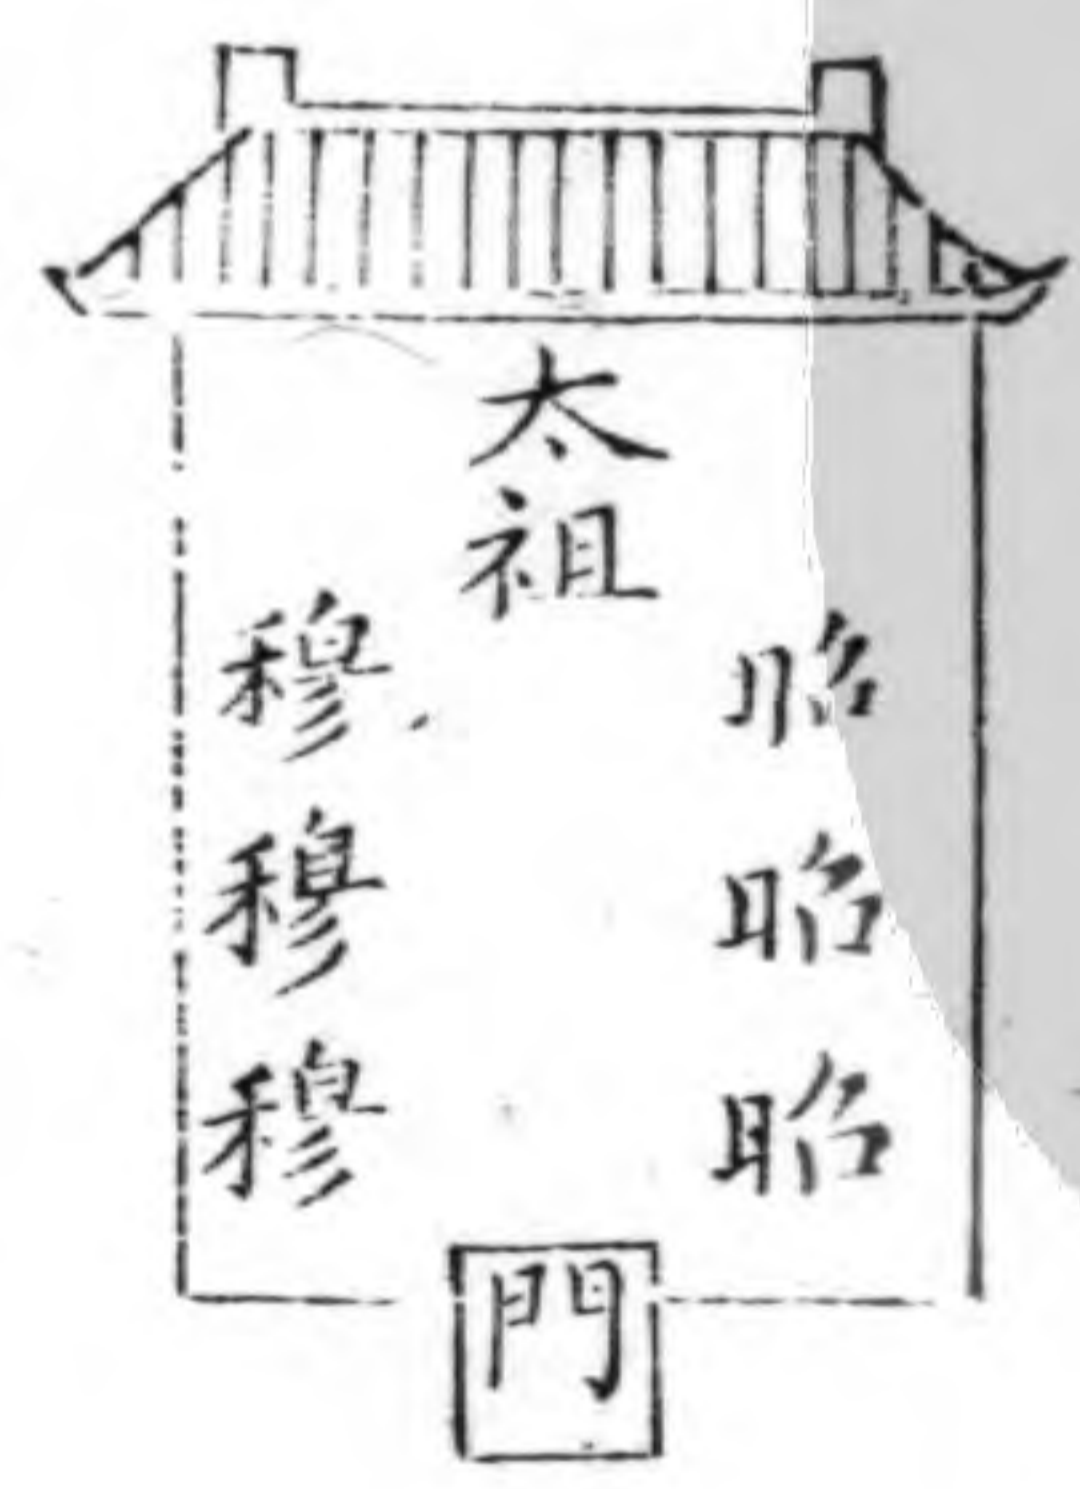 太祖
昭
昭
昭
穆
穆
穆
門